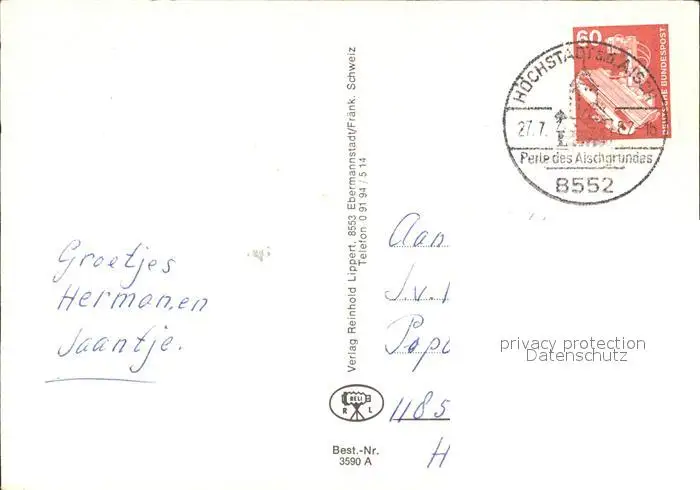 60
DEUTSCHE BUNDESPOST
HÖCHSTADT a.d. AISCH
27.7. 87-16
Perle des Aischgrundes
8552
Groetjes
Herman en
Jaantje.
Verlag Reinhold Lippert, 8553 Ebermannstadt/Fränk. Schweiz
Telefon 0 91 94 / 5 14
RELI
R L
Best.-Nr.
3590 A
Aan
J.v.
Pop
1185
H
privacy protection
Datenschutz